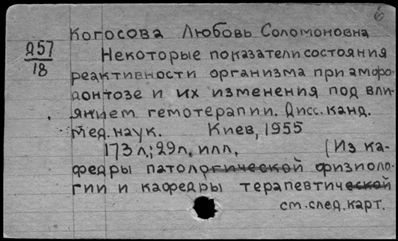 6
Когосова Любовь Соломоновна
257
18
Некоторые показатели состояния
реактивности организма при амфо-
донтозе и их изменения под вли-
янием гемотерапии. Дисс. канд.
мед. наук. Киев, 1955
173 л.; 29 л. илл. (Из ка-
федры патологической физиоло-
гии и кафедры терапевтической
см. след. карт.